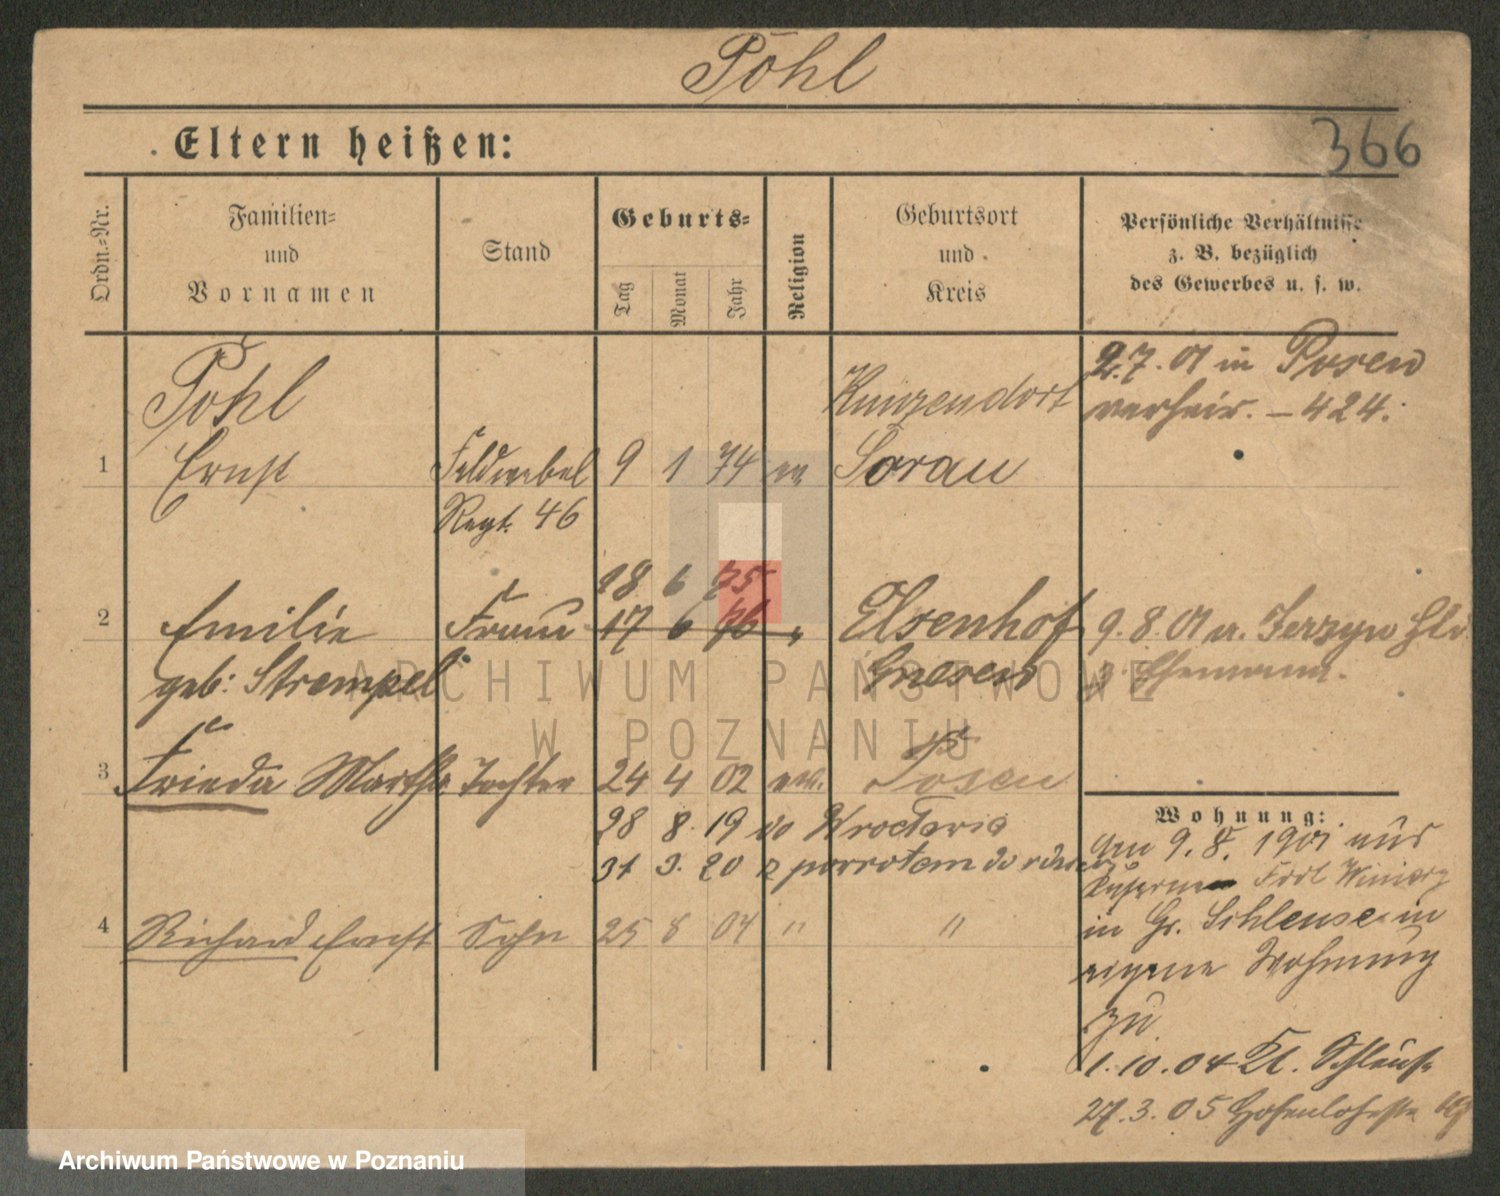 Pohl
Eltern heißen:
366
Ordn.-Nr.
Familien-
und
Vornamen
Stand
Geburts-
Tag
Monat
Jahr
Religion
Geburtsort
und
Kreis
Persönliche Verhältnisse
z. B. bezüglich
des Gewerbes u. s. w.
Pohl
1 Ernst Feldwebel 9 1 74 ev Sorau
Regt. 46
Kunzendorf
2.7.01 in Posen
verheir. – 424.
18 6 75
2 Emilie Frau 17 6 76 " Elsenhof
geb: Strempel Gnesen
9.8.01 a. Jerzyn
z Ehemann.
3 Frieda Martha Tochter 24 4 02 ev. Posen
28 8. 19 do Wrocławia
31 3. 20 z powrotem do
4 Richard Ernst Sohn 25 8 04 " "
Wohnung:
am 9.8. 1901 aus
Kaserne Fort Winiary
in Gr. Schleuse in
eigene Wohnung
zu
1.10.04 Kl. Schleuse
27.3.05 Hohenlohestr
ARCHIWUM PAŃSTWOWE
W POZNANIU
Archiwum Państwowe w Poznaniu